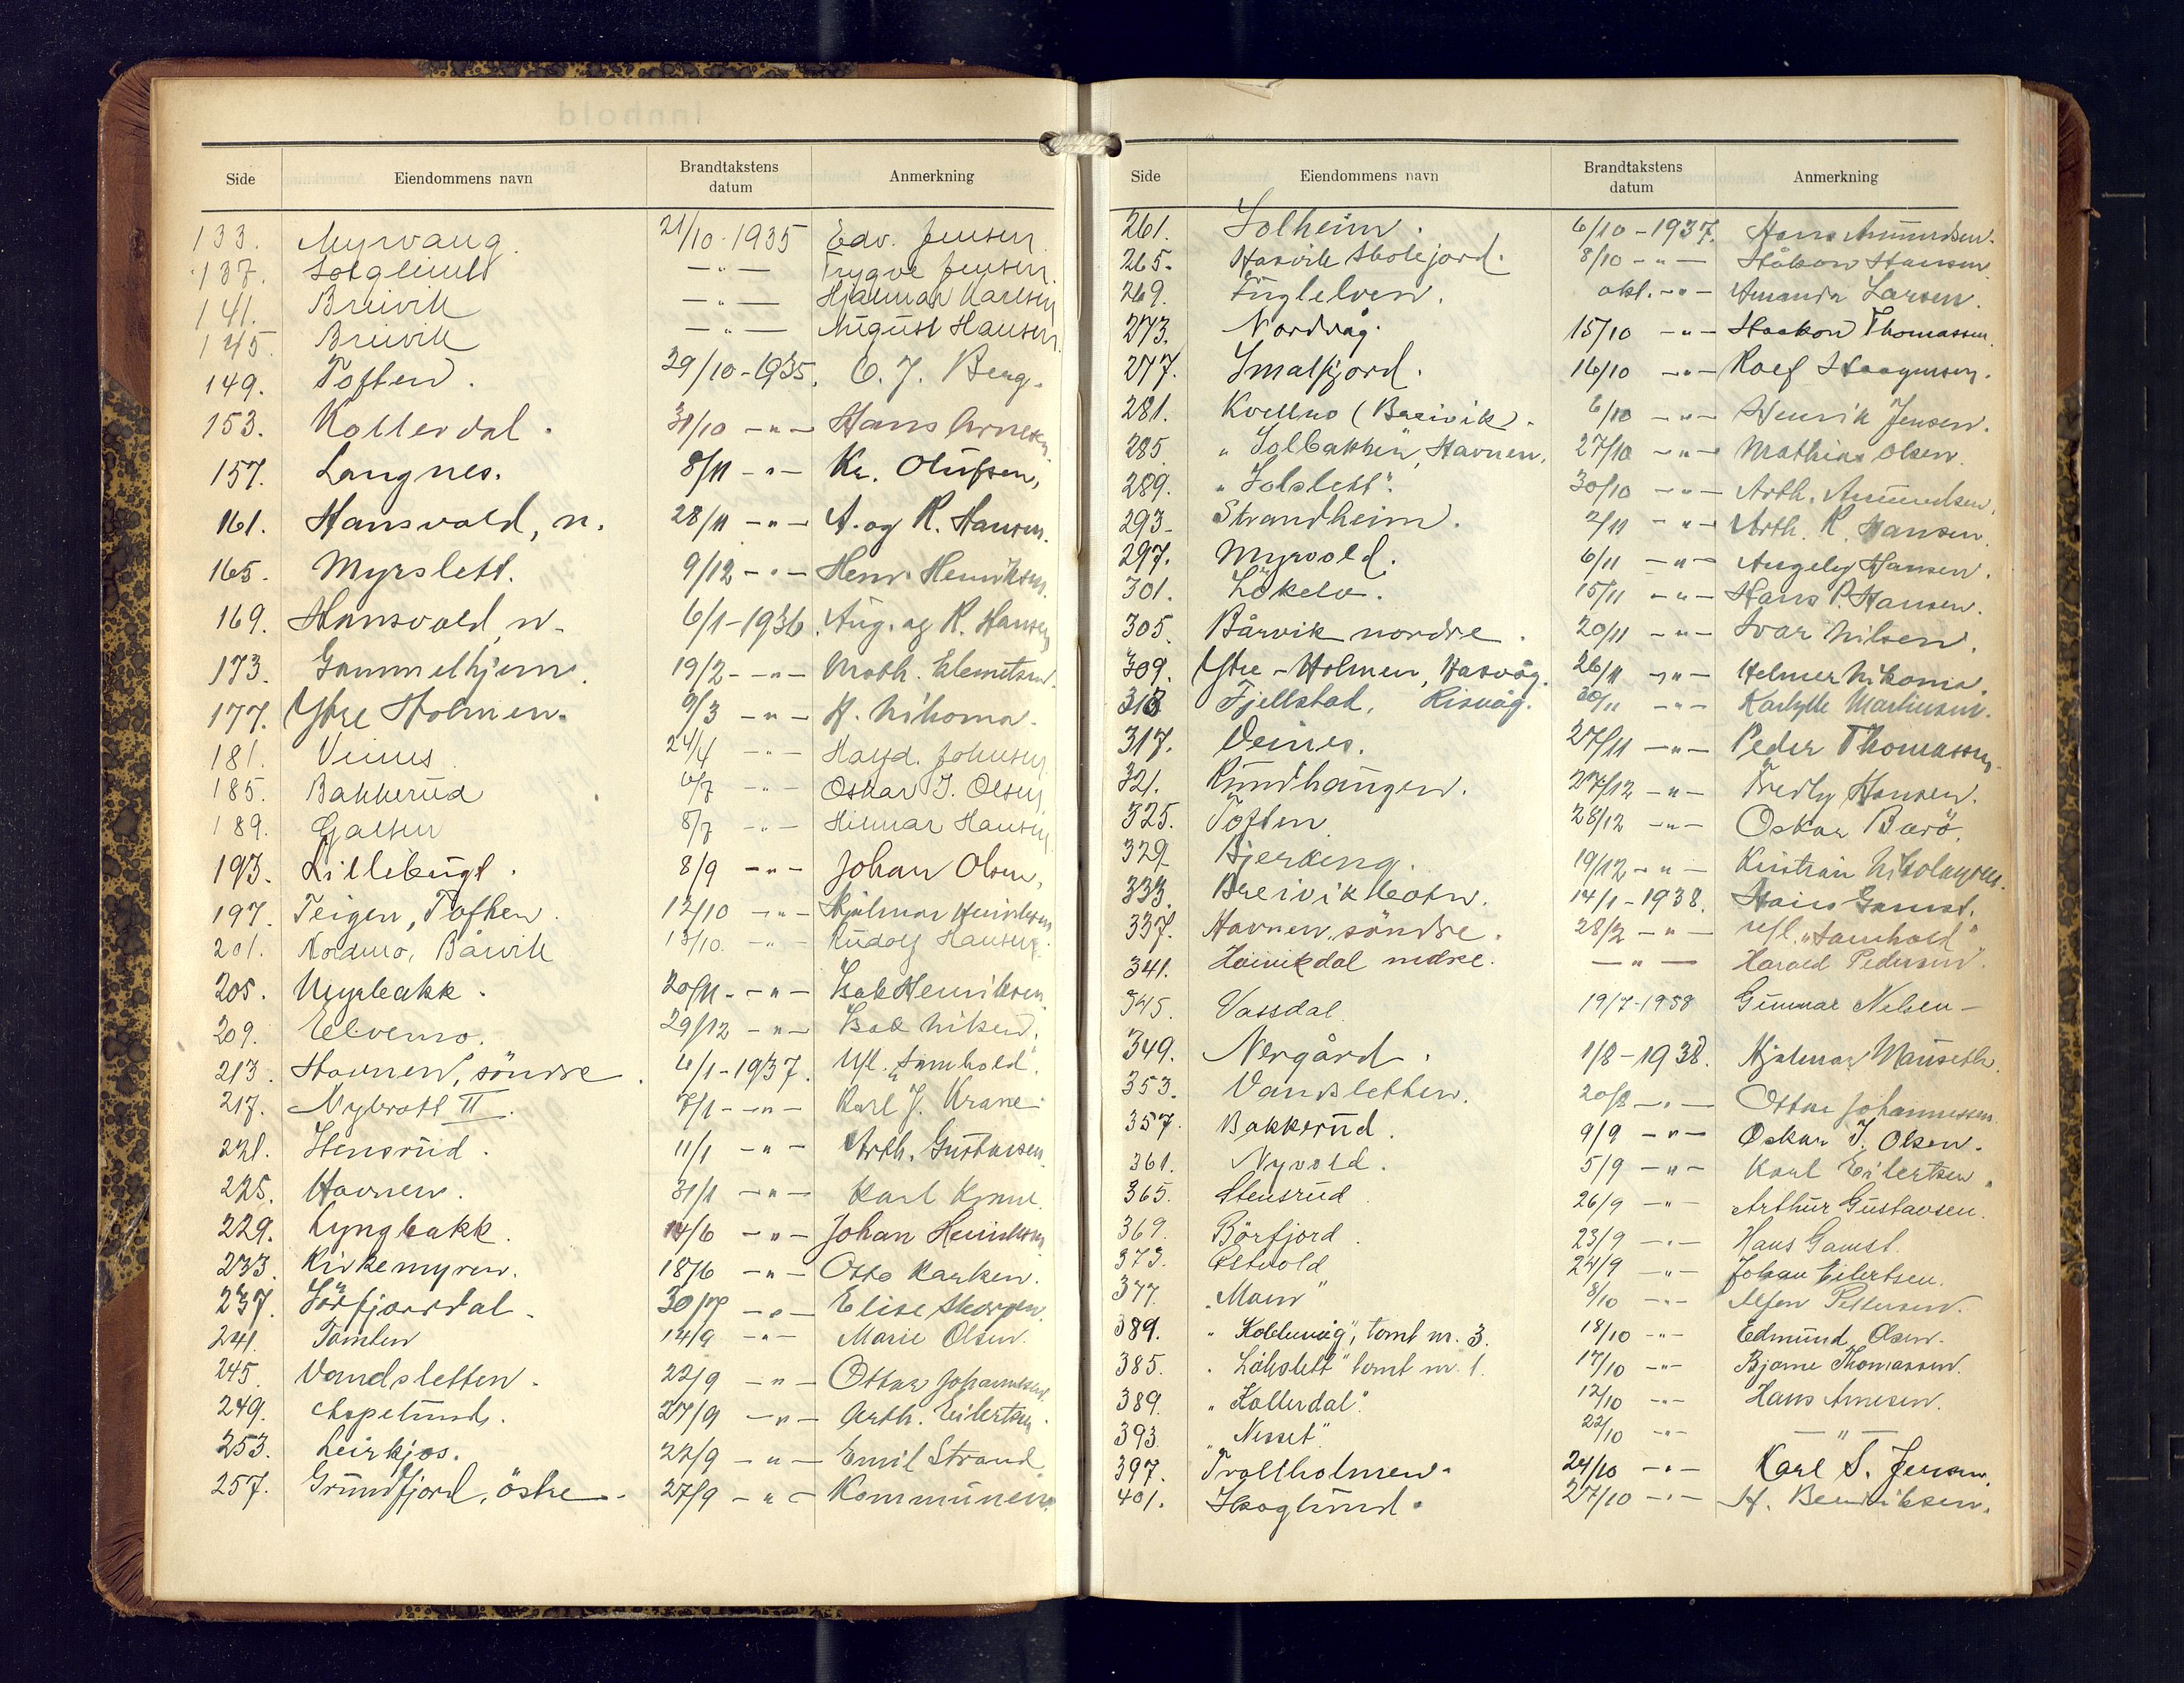 Side Eiendommens navn Brandtakstens datum Anmerkning
133. Myrvang. 21/10-1935 Edv. Jensen
137. Solglimt —"— Trygve Jensen
141. Breivik —"— Hjalmar Karlsen
145. Breivik —"— August Hansen
149. Toften. 29/10-1935. O. J. Berg.
153. Kollerdal. 31/10 —"— Hans Arnesen
157. Langnes. 8/11 —"— Kr. Olufsen,
161. Hansvold, n. 28/11 —"— A. og R. Hansen.
165. Myrslett. 9/12 —"— Henr. Henriksen.
169. Hansvold n. 6/1-1936. Aug. og R. Hansen
173. Gammelhjem. 19/2 —"— Math. Klemetsen.
177. Ytre Holmen. 9/3 —"— H. Nikoma.
181. Veines 24/4 —"— Hagb. Johnsen
185. Bakkerud 6/7 —"— Oskar J. Olsen
189. Galten 8/7 —"— Hilmar Hansen
193. Lillebugt. 8/9 —"— Johan Olsen,
197. Teigen, Toften. 12/10 —"— Hjalmar Henriksen
201. Nordmo, Bårvik 13/10. —"— Rudolf Hansen.
205. Myrbakk. 20/11 —"— Isak Henriksen
209. Elvemo. 29/12 —"— Isak Nilsen.
213. Havnen, söndre. 6/1-1937. Ufl. "Samhold".
217. Nybrott II. 7/1 —"— Karl J. Krane
221. Stensrud. 11/1 —"— Arth. Gustavsen.
225. Havnen. 31/1 —"— Karl
229. Lyngbakk. 14/6 —"— Johan Henriksen
233. Kirkemyren. 18/6 —"— Otto Karlsen.
237. Sörfjorddal. 30/7 —"— Elise Skorpen.
241. Tomten 14/9 —"— Marie Olsen.
245. Vandsletten. 22/9 —"— Ottar Johannessen.
249. Aspelund. 27/9 —"— Arth. Eilertsen.
253. Leirkjos. 27/9 —"— Emil Strand
257. Grundfjord, östre. 27/9 —"— Kommunen.
Side Eiendommens navn Brandtakstens datum Anmerkning
261. Solheim. 6/10-1937. Hans Amundsen.
265. Hasvik Skolejord. 8/10 —"— Håkon Hansen
269. Fuglelven. okt. —"— Amanda Larsen.
273. Nordvåg. 15/10 —"— Haakon Thomassen.
277. Smalfjord. 16/10 —"— Rolf Haagensen.
281. Kvellmo (Breivik). 6/10 —"— Henrik Jensen.
285 "Solbakken", Havnen. 27/10 —"— Mathias Olsen.
289. "Solslett". 30/10 —"— Arth. Amundsen.
293. Strandheim. 2/11 —"— Arth. R. Hansen.
297. Myrvold. 6/11 —"— Angely Hansen.
301. Lökelv. 15/11 —"— Hans P. Hansen.
305. Bårvik nordre. 20/11 —"— Ivar Nilsen.
309. Ytre-Holmen, Hasvåg. 26/11 —"— Helmer Nikoma.
313 Fjellstad, Risvåg. 30/11 —"— Martinsen.
317. Veines. 27/11 —"— Peder Thomassen.
321. Rundhaugen. 27/12 —"— Fredly Hansen.
325. Toften 28/12 —"— Oskar Barö.
329 Bjerkeng. 19/12 —"— Kristian Nikolaysen.
333. Breivikbotn. 14/1-1938. Hans Gamst.
337. Havnen, söndre. 28/2 —"— Ufl. "Samhold"
341. Hönsikdal nedre. —"— Harald Pedersen.
345. Vassdal 19/7-1938 Gunnar Nilsen —
349. Nergård. 1/8-1938. Hjalmar Mauseth.
353. Vandsletten. 20/8 —"— Ottar Johannessen
357. Bakkerud. 9/9 —"— Oskar J. Olsen.
361. Nyvold. 5/9 —"— Karl Eilertsen
365. Stensrud 26/9 —"— Arthur Gustavsen.
369. Börfjord. 23/9 —"— Hans Gamst.
373. Estvold 24/9 —"— Johan Eilertsen.
377. "Moen" 8/10 —"— Alfon Pettersen.
389. "Koldevåg", tomt nr. 3. 18/10 —"— Edmund Olsen.
385. "Lökslett" tomt nr. 1. 17/10 —"— Bjarne Thomassen.
389. "Kollerdal". 12/10 —"— Hans Arnesen.
393. "Nesset". 22/10 —"— —"—
397. Trollholmen. 24/10 —"— Karl S. Jensen.
401. Skoglund. 27/10 —"— H. Bendiksen.